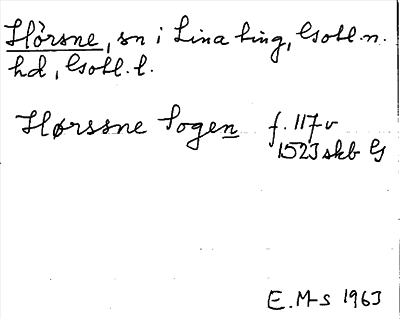 Hörsne, sn i Lina ting, Gotl. n.
hd, Gotl. l.
Hørssne Sogen f. 117 v
1523 skb G
E. M-s 1963